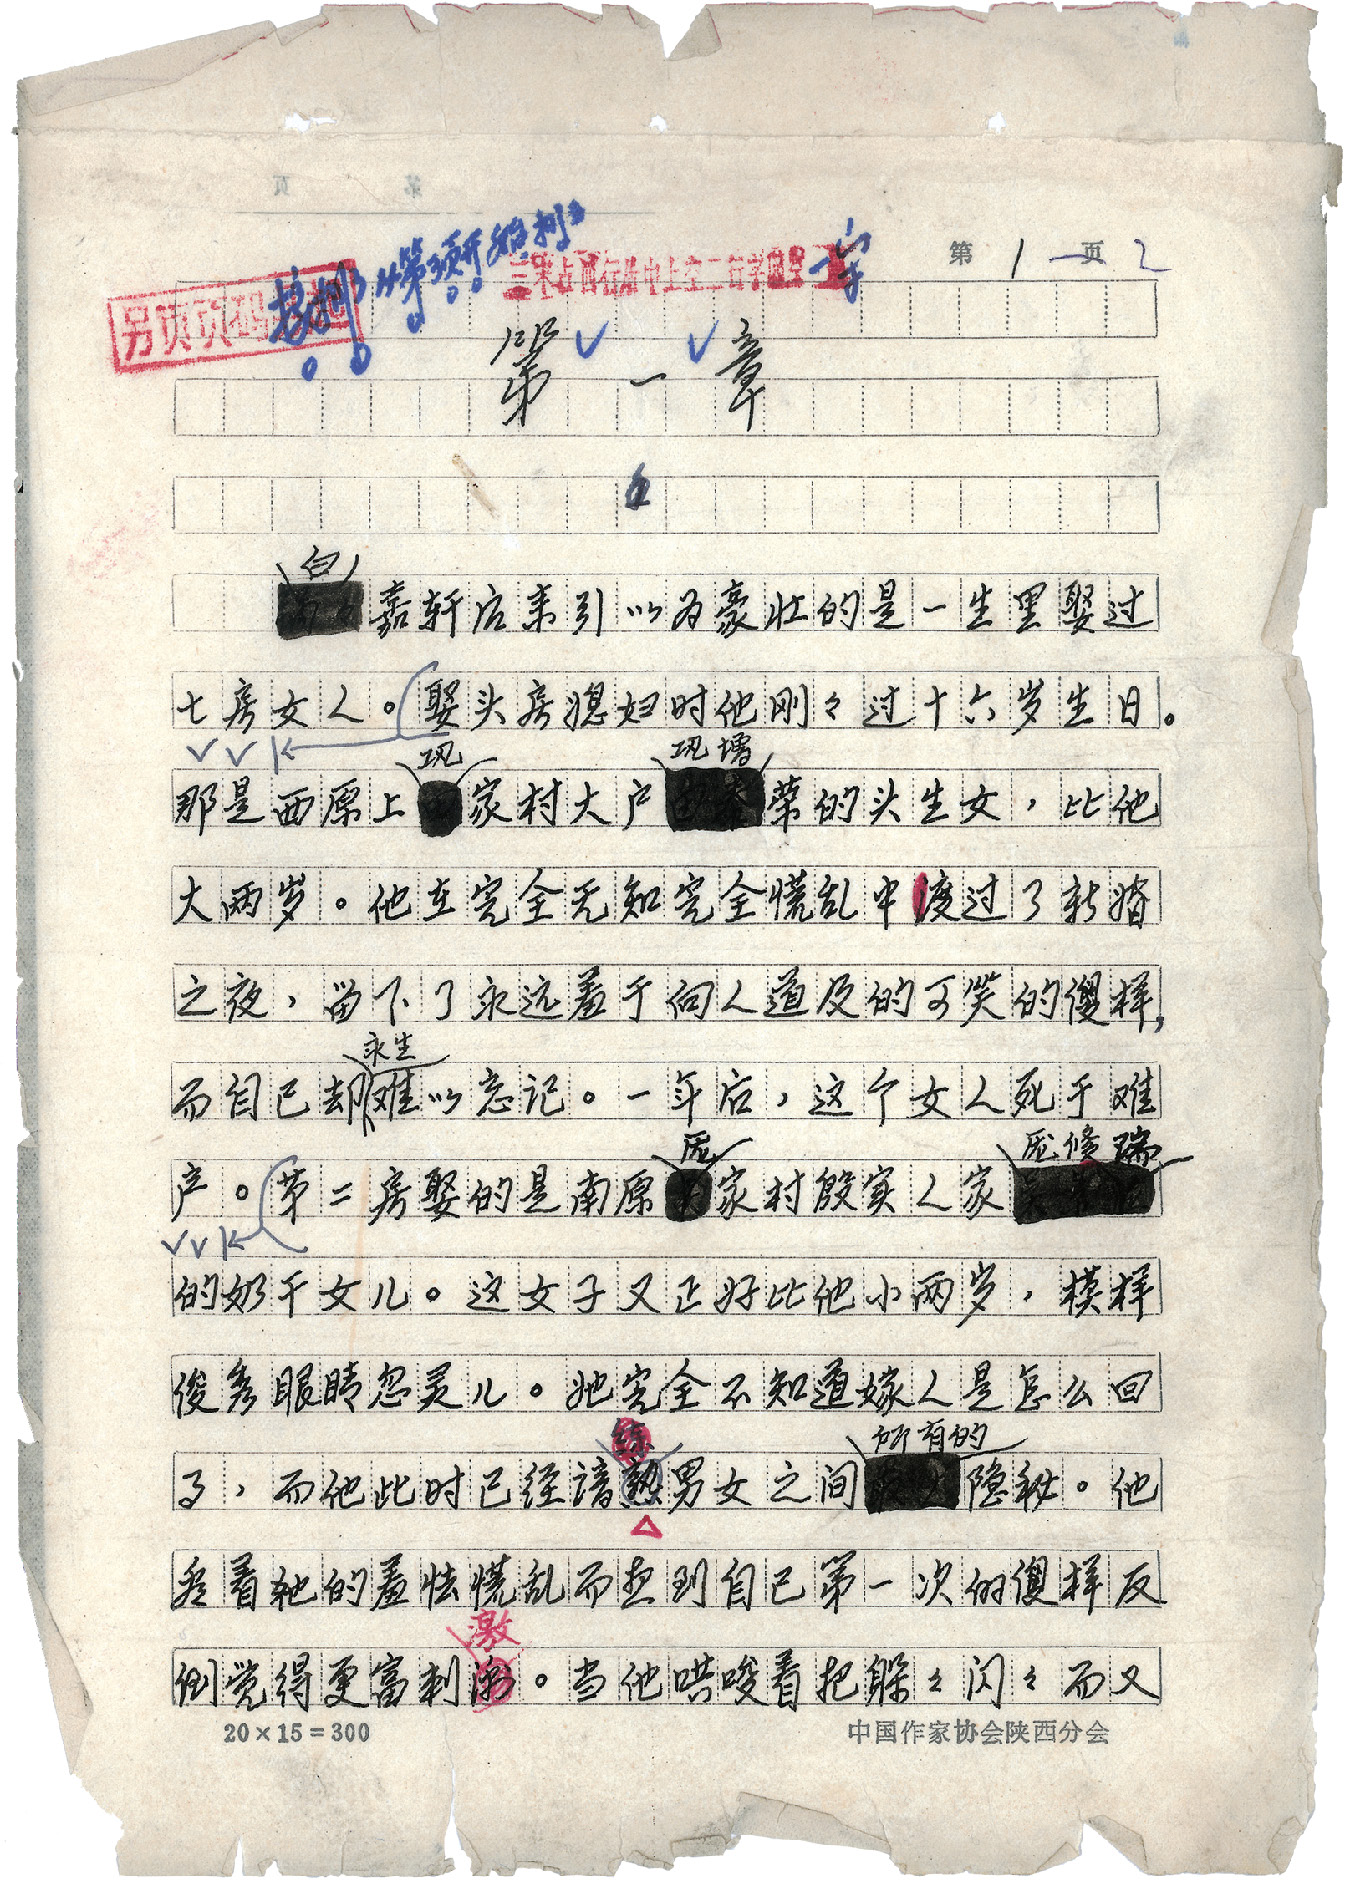 第1页 2
第一章
白
嘉轩后来引以为豪壮的是一生里娶过
七房女人。娶头房媳妇时他刚々过十六岁生日。
巩 巩增
那是西原上家村大户荣的头生女，比他
大两岁。他在完全无知完全慌乱中渡过了新婚
之夜，留下了永远羞于向人道及的可笑的傻样，
永生
而自己却难以忘记。一年后，这个女人死于难
庞 庞修瑞
产。第二房娶的是南原家村殷实人家
的奶干女儿。这女子又正好比他小两岁，模样
俊秀眼睛忽灵儿。她完全不知道嫁人是怎么回
练 所有的
事，而他此时已经谙熟男女之间隐秘。他
看着她的羞怯慌乱而想到自己第一次的傻样反
激
倒觉得更富刺。当他哄唆着把躲々闪々而又
20×15=300 中国作家协会陕西分会